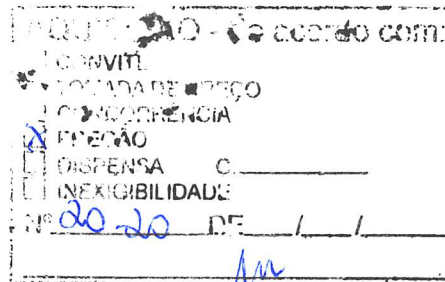 AQUISIÇÃO - De acordo com:
CONVITE
TOMADA DE PREÇO
CONCORRÊNCIA
X PREGÃO
DISPENSA C.
INEXIGIBILIDADE
Nº 20-20 DE / /